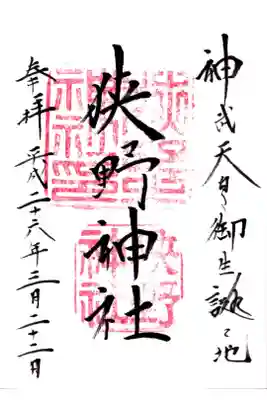 神武天皇御生誕之地
狭野神社
奉拝 平成二十六年三月二十二日